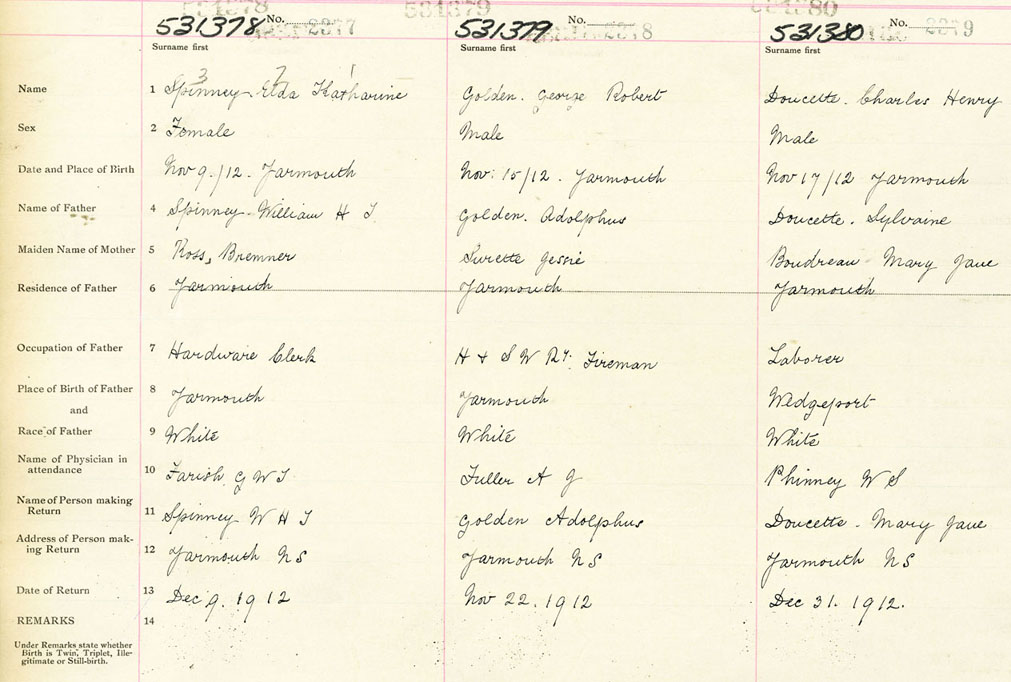 531378 No. 2277 531379 No. 2278 531380 No. 2279
Surname first Surname first Surname first
3 2 1
Name 1 Spinney Elda Katharine Golden. George Robert Doucette. Charles Henry
Sex 2 Female Male Male
Date and Place of Birth Nov 9./12. Yarmouth Nov: 15/12. Yarmouth Nov 17/12 Yarmouth
Name of Father 4 Spinney William H T. Golden. Adolphus Doucette. Sylvaine
Maiden Name of Mother 5 Ross, Bremner Surette Jessie Boudreau Mary Jane
Residence of Father 6 Yarmouth Yarmouth Yarmouth
Occupation of Father 7 Hardware Clerk H & S W Ry: Fireman Laborer
Place of Birth of Father 8 Yarmouth Yarmouth Wedgeport
and
Race of Father 9 White White White
Name of Physician in
attendance 10 Farish G W T Fuller A J Phinney W S
Name of Person making
Return 11 Spinney W H T Golden Adolphus Doucette. Mary Jane
Address of Person mak-
ing Return 12 Yarmouth NS Yarmouth NS Yarmouth NS
Date of Return 13 Dec 9. 1912 Nov 22. 1912 Dec 31. 1912.
REMARKS 14
Under Remarks state whether
Birth is Twin, Triplet, Ille-
gitimate or Still-birth.